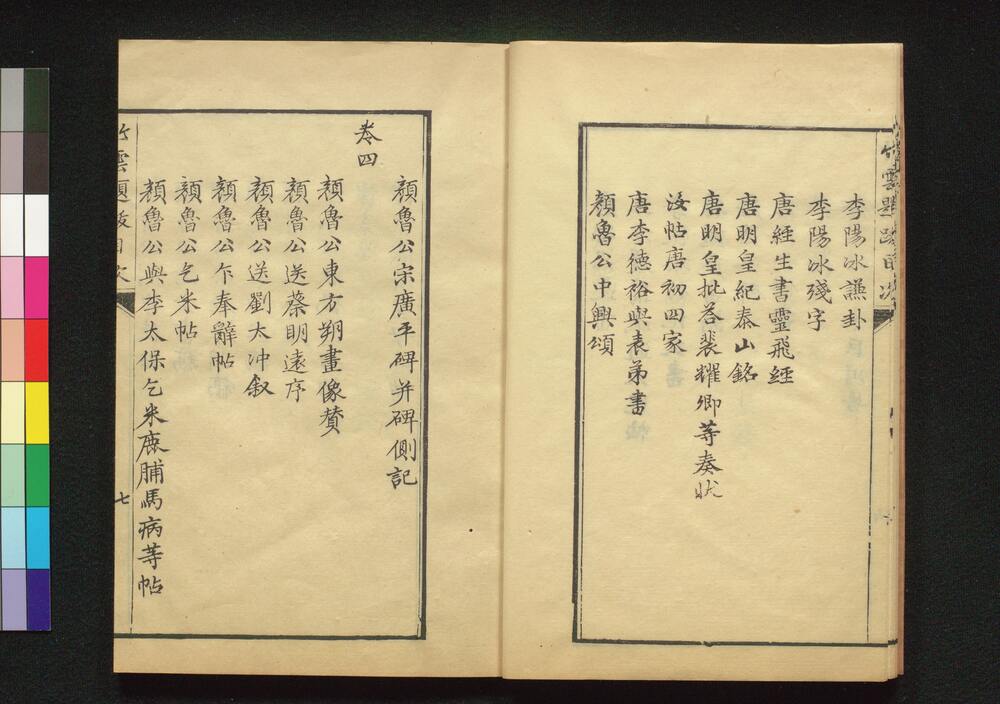 李陽冰謙卦
李陽冰殘字
唐經生書靈飛經
唐明皇紀泰山銘
唐明皇批荅裴耀卿等奏狀
汝帖唐初四家
唐李德裕與表弟書
顏魯公中興頌
顏魯公宋廣平碑并碑側記
卷四
顏魯公東方朔畫像贊
顏魯公送蔡明遠序
顏魯公送劉太冲叙
顏魯公乍奉辭帖
顏魯公乞米帖
顏魯公與李太保乞米鹿脯馬病等帖
竹雲題跋目次
七